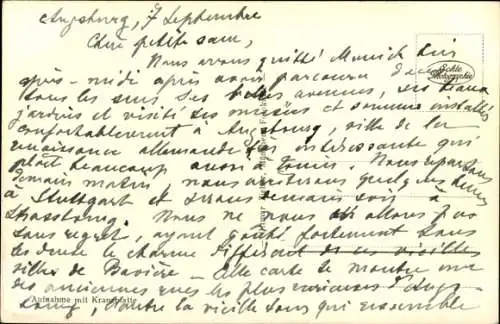 Augsburg, 7 Septembre
Chère petite sœur,
Nous avons quitté Munich
après-midi après avoir parcouru
tous les sens ses belles avenues, ses beaux
jardins et visité ses musées et sommes installés
confortablement à Augsbourg, ville de la
renaissance allemande très intéressante qui
plaît beaucoup aussi à Nous repartons
demain matin, nous arrêterons quelques heures
à Stuttgart et serons demain soir à
Strasbourg. Nous ne nous en allons pas
sans regret, ayant goûté fortement sans
doute le charme de ces vieilles
villes de Bavière - Cette carte te montre une
des anciennes rues les plus curieuses d'Augs-
bourg, la vieille tour qui ressemble
Echte Photographie
Aufnahme mit Kranplatte